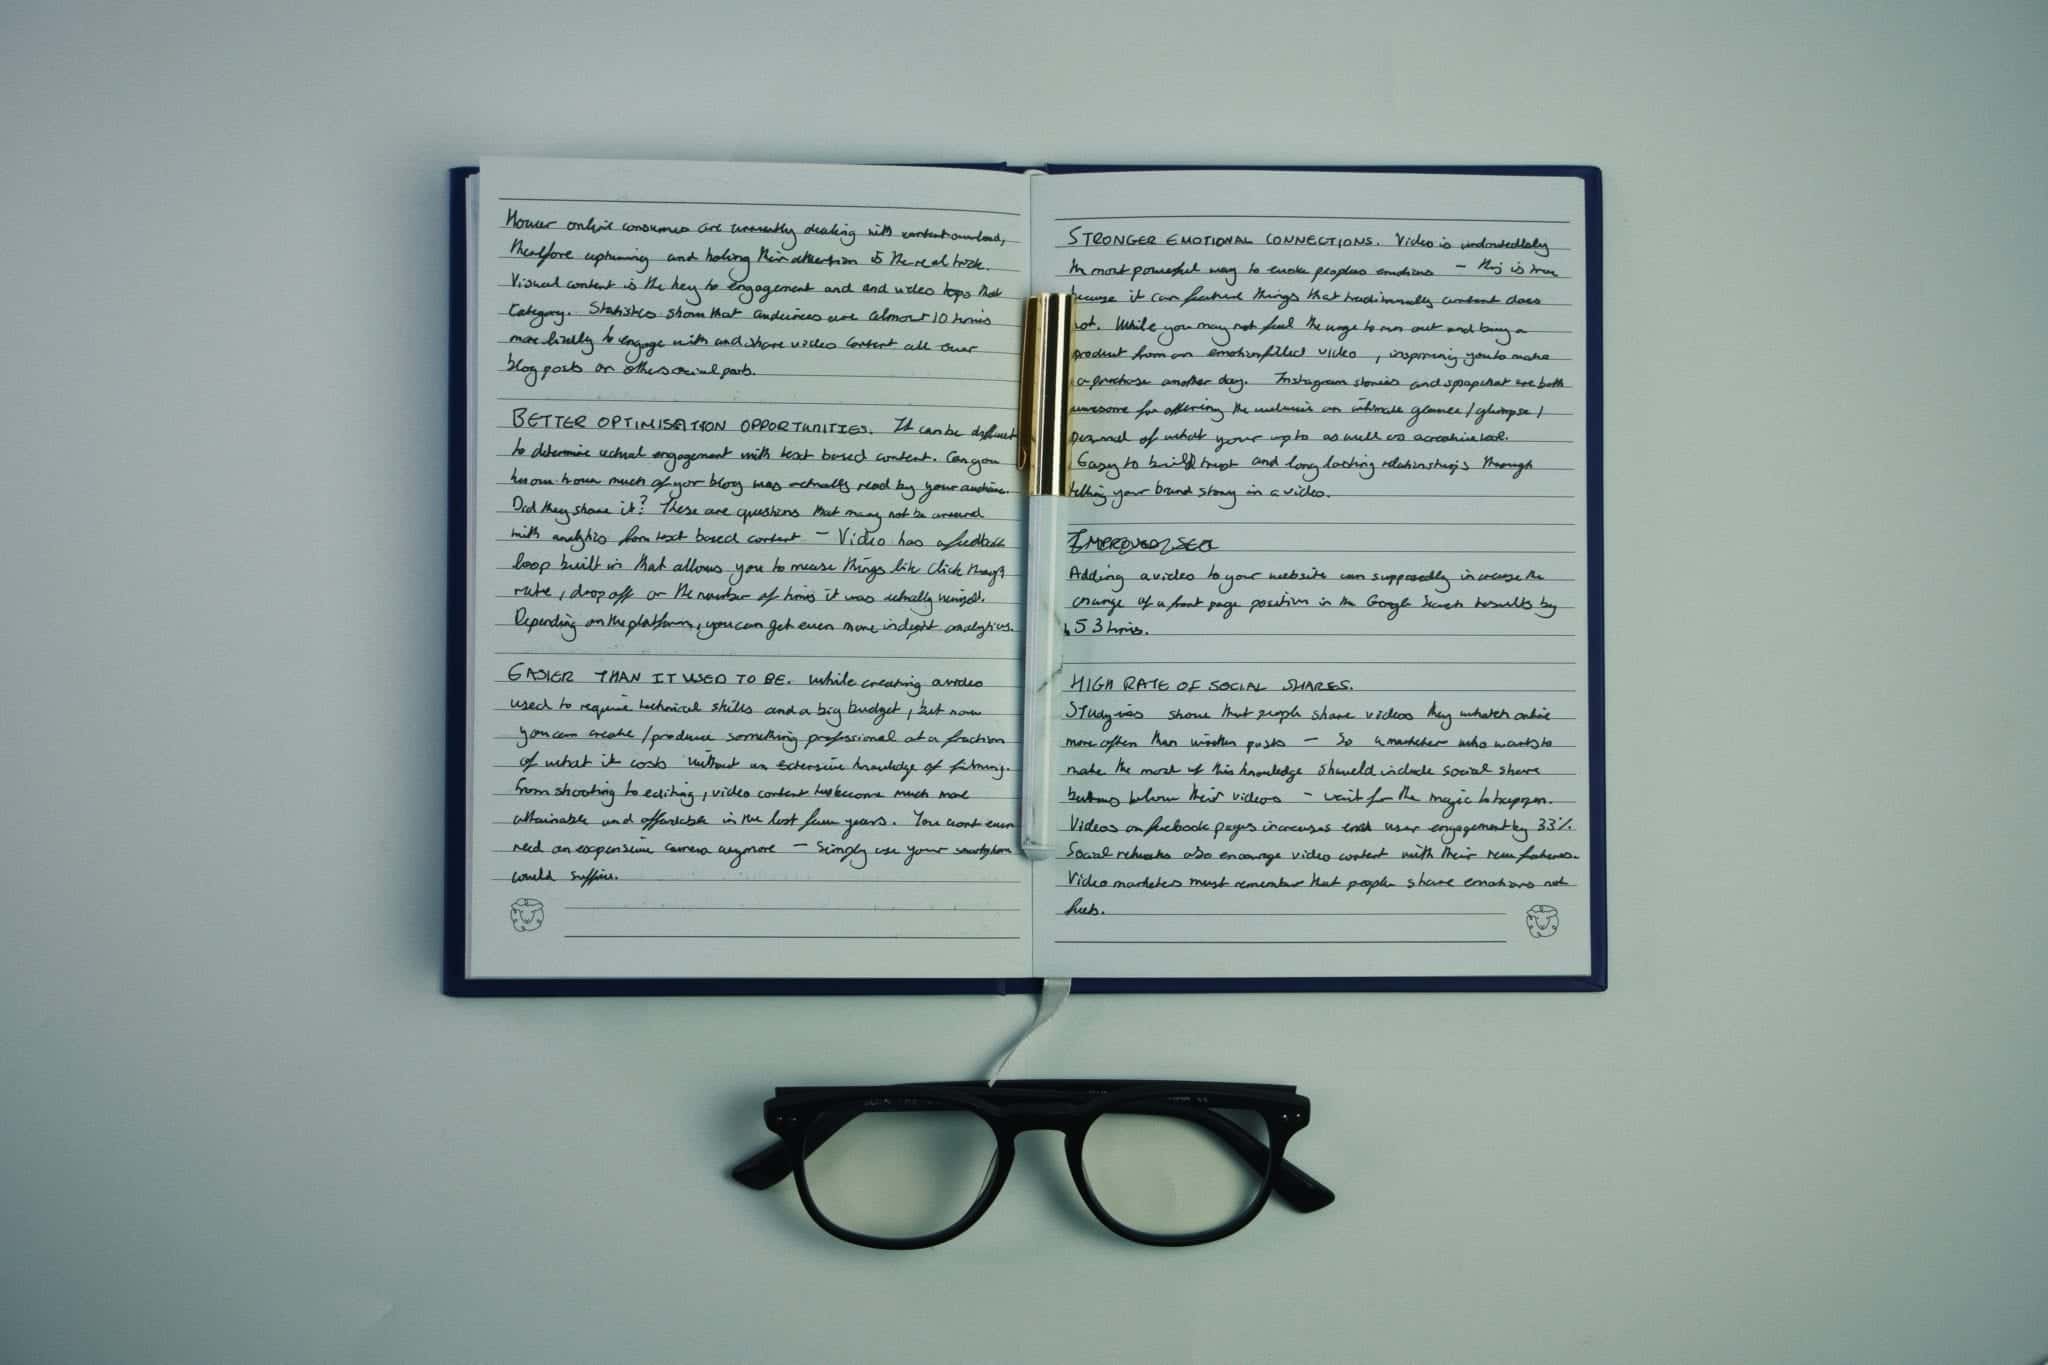 However online consumers are currently dealing with content overload,
therefore capturing and holding their attention is the real trick.
Visual content is the key to engagement and and video tops that
category. Statistics show that audiences are almost 10 times
more likelly to engage with and share video content all over
blog posts or other social posts.
BETTER OPTIMISATION OPPORTUNITIES. It can be difficult
to determine actual engagement with text based content. Can you
know how much of your blog was actually read by your audience.
Did they share it? These are questions that may not be answered
with analytics from text based content - Video has a feedback
loop built in that allows you to measure things like click through
rate, drop off or the number of times it was actually viewed.
Depending on the platform, you can get even more indepth analytics.
EASIER THAN IT USED TO BE. While creating a video
used to require technical skills and a big budget, but now
you can create/produce something professional at a fraction
of what it costs without an extensive knowledge of filming.
From shooting to editing, video content has become much more
attainable and affordable in the last few years. You wont even
need an expensive camera anymore - Simply use your smartphone
could suffice.
STRONGER EMOTIONAL CONNECTIONS. Video is undoutedlaly
the most powerful way to evoke peoples emotions - this is true
because it can feature things that traditionally content does
not. While you may not feel the urge to run out and buy a
product from an emotion filled video, inspiring you to make
a purchase another day. Instagram stories and snapchat are both
awesome for offering the an intimate glance/glimpse/
of what your up to as well as a creative tool.
Easy to build trust and long lasting relationships through
telling your brand story in a video.
IMPROVED SEO
Adding a video to your website can supposedly increase the
change of a front page position in the Google Search results by
53 times.
HIGH RATE OF SOCIAL SHARES.
Studyies show that people share videos they whatch online
more often than written posts - So a marketer who wants to
make the most of this knowledge should include social share
buttons below their videos - wait for the magic to happen.
Videos on facebook pages increases end user engagement by 33%.
Social networks also encourage video content with their new features.
Video marketers must remember that people share emotions not
facts.